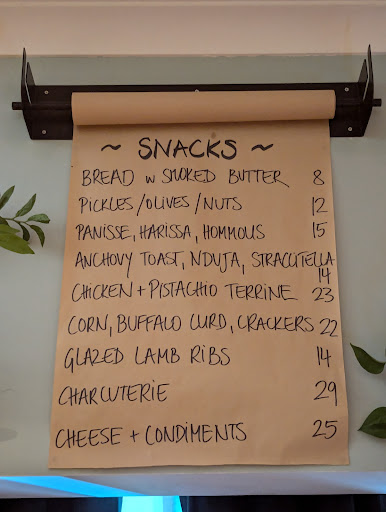 ~ SNACKS ~
BREAD w SMOKED BUTTER 8
PICKLES/OLIVES/NUTS 12
PANISSE, HARISSA, HOMMOUS 15
ANCHOVY TOAST, NDUJA, STRACCITELLA 14
CHICKEN + PISTACHIO TERRINE 23
CORN, BUFFALO CURD, CRACKERS 22
GLAZED LAMB RIBS 14
CHARCUTERIE 29
CHEESE + CONDIMENTS 25